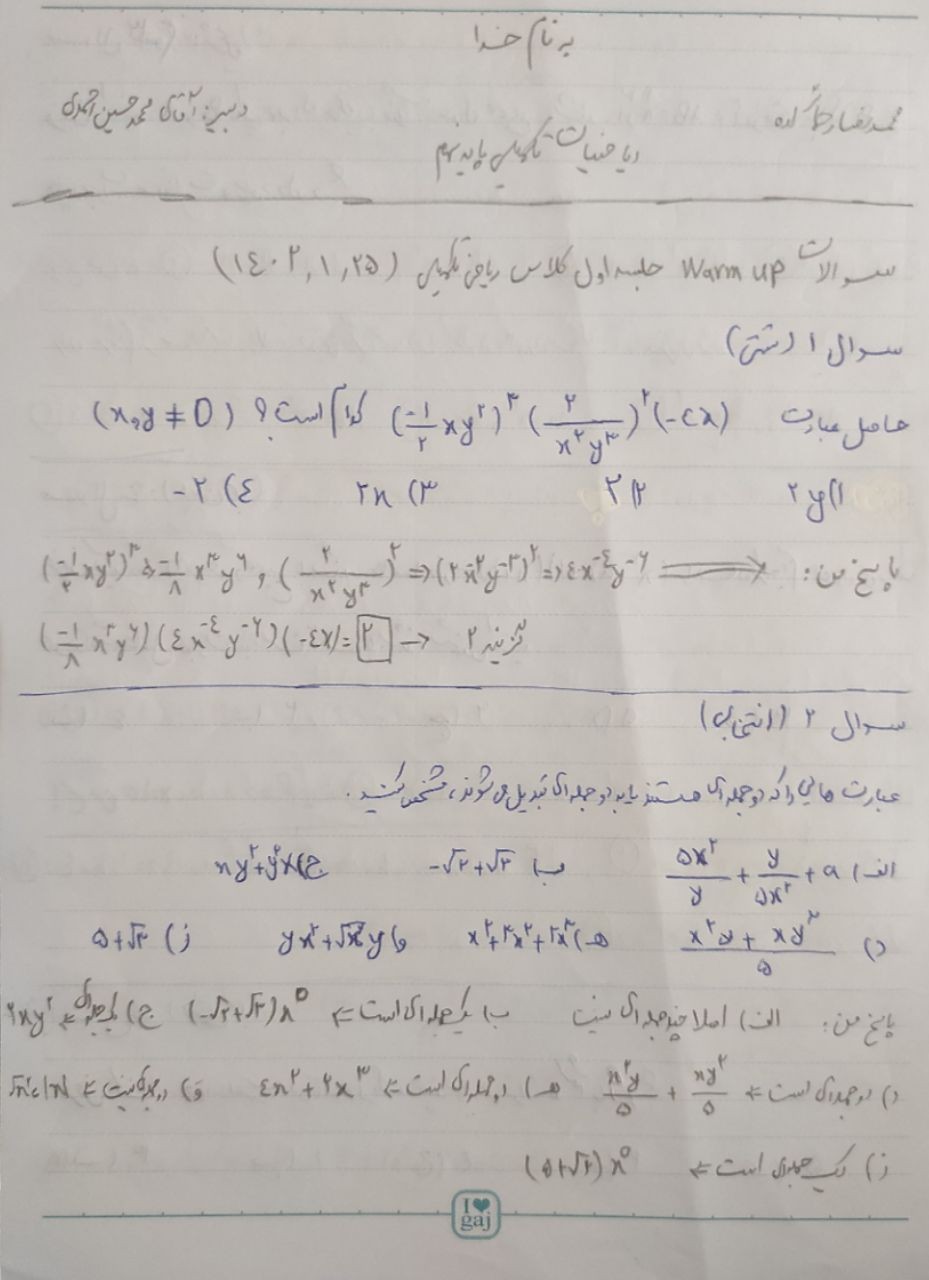 به نام خدا
محمدرضا دبیر: آقای محمد حسین احمدی
ریاضیات تکمیلی پایه نهم
سوالات Warm up جلسه اول کلاس ریاضی تکمیلی (۱۴۰۲,۱,۲۵)
سوال ۱ (تستی)
حاصل عبارت (-۱/۲ xy^۲)^۳ (۲/(x^۲y^۳))^۲ (-۴x) کدام است؟ (x,y ≠ 0)
۱) ۲y ۲) ۲ ۳) ۲x ۴) -۲
پاسخ من: (-۱/۲ xy^۲)^۳ ⇒ -۱/۸ x^۳y^۶ , (۲/(x^۲y^۳))^۲ ⇒ (۲x^-۲y^-۳)^۲ ⇒ ۴x^-۴y^-۶ ⟹
(-۱/۸ x^۳y^۶)(۴x^-۴y^-۶)(-۴x) = ۲ → گزینه ۲
سوال ۲ (انتخابی)
عبارت هایی را که دو جمله ای هستند یا به دو جمله ای تبدیل می شوند، مشخص کنید.
الف) ۵x^۲/y + y/۵x^۲ + ۹ ب) -√۲+√۳ ج) xy^۲+y^۲x
د) (x^۲y + xy^۲)/۵ هـ) x^۲+۳x^۲+۲x^۳ و) yx^۲+√x^۲y ز) ۵+√۲
پاسخ من: الف) اصلا چندجمله ای نیست ب) یک جمله ای است ⇐ (-√۲+√۳)x^۰ ج) یک جمله ای ⇐ ۲xy^۲
د) دوجمله ای است ⇐ x^۲y/۵ + xy^۲/۵ هـ) دو جمله ای است ⇐ ۴x^۲+۲x^۳ و) دو جمله ای نیست ⇐ √x^۲=|x|
ز) یک جمله ای است ⇐ (۵+√۲)x^۰
I ♥ gaj